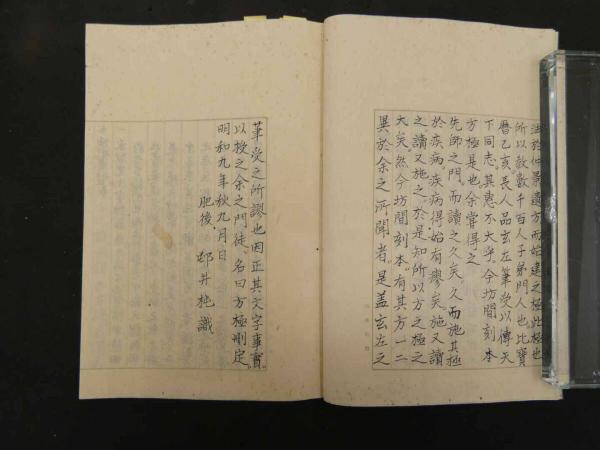 法於仲景遺方而始建之極此極也
所以教數千百人子弟門人也比寶
曆乙亥長人品玄左筆受以傳天
下同志其惠不大乎今坊間刻本
方極是也余嘗得之
先師之門而讀之久矣久而施其極
於疾病疾病得始有瘳矣施又讀
之讀又施之於是知所以方之極之
大矣然今坊間刻本有其方一二
異於余之所聞者是蓋玄左之
筆受之所謬也因正其文字事實
以授之余之門徒名曰方極刪定
明和九年秋九月日
肥後 邨井杶識